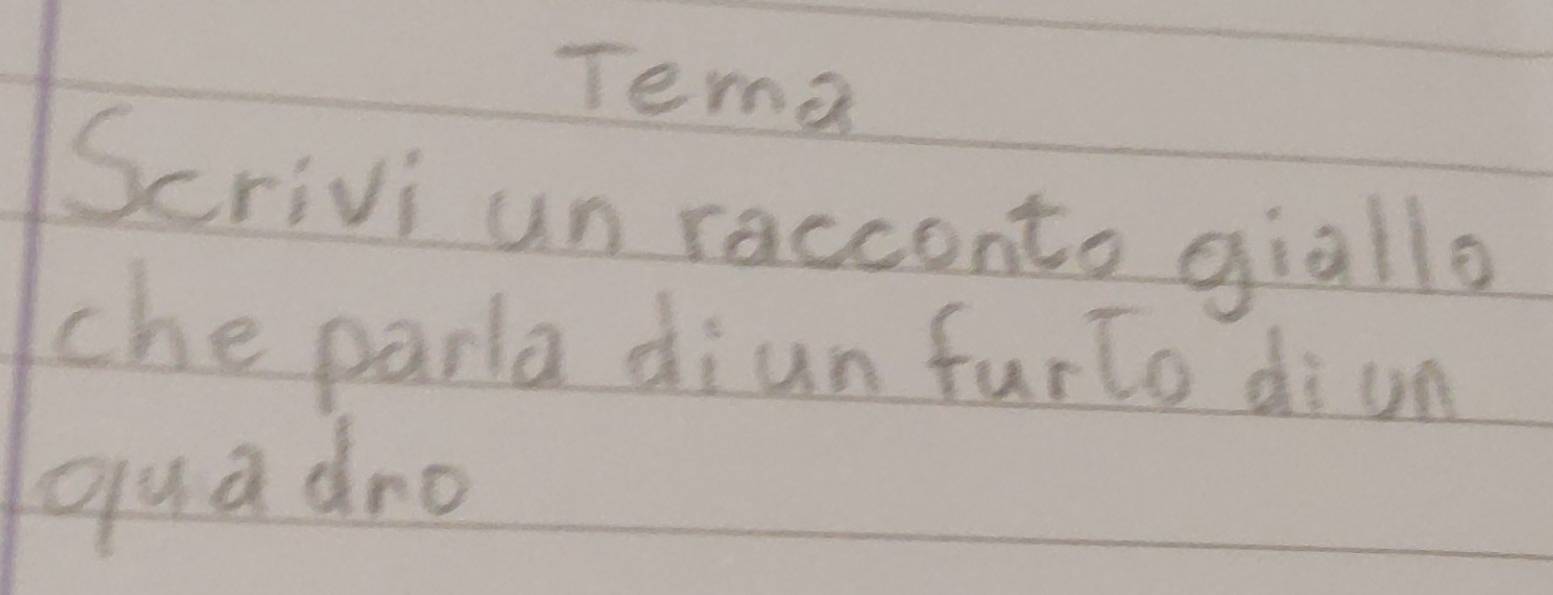 Tema
Scrivi un racconto giallo
che parla di un furto di un
quadro